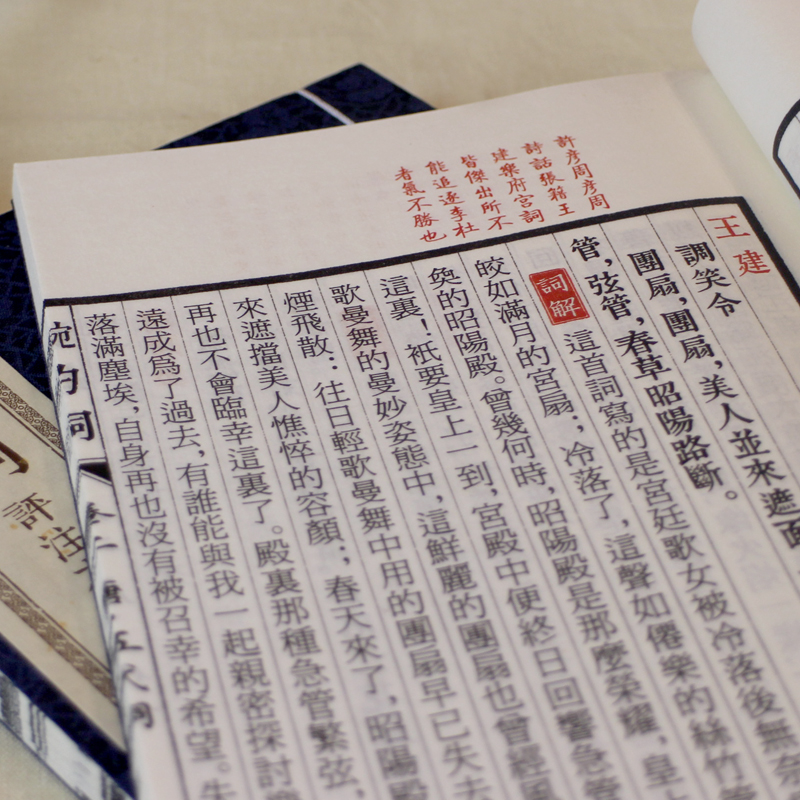 許彦周彦周
詩話張籍王
建樂府宮詞
皆傑出所不
能追逐李杜
者氣不勝也
王建
調笑令
團扇，團扇，美人並來遮面
管，弦管，春草昭陽路斷。
詞解
這首詞寫的是宮廷歌女被冷落後無奈
皎如滿月的宮扇；冷落了，這聲如僊樂的絲竹管
奐的昭陽殿。曾幾何時，昭陽殿是那麼榮耀，皇上
這裏！衹要皇上一到，宮殿中便終日回響急管
歌曼舞的曼妙姿態中，這鮮麗的團扇也曾經風
煙飛散：往日輕歌曼舞中用的團扇早已失去
來遮擋美人憔悴的容顏；春天來了，昭陽殿
再也不會臨幸這裏了。殿裏那種急管繁弦，
遠成爲了過去，有誰能與我一起親密探討
落滿塵埃，自身再也沒有被召幸的希望。失
的詞
卷二
唐五代詞
評注